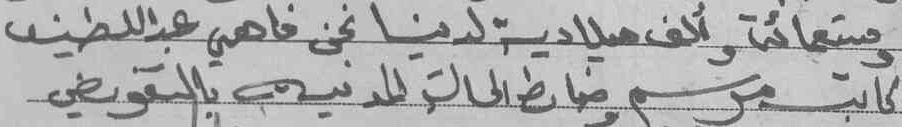 وستمائة وألف ميلادية لدينا نحن فاهمي عبد اللطيف
كاتب مرسم وضابط الحالة المدنية بالتفويض